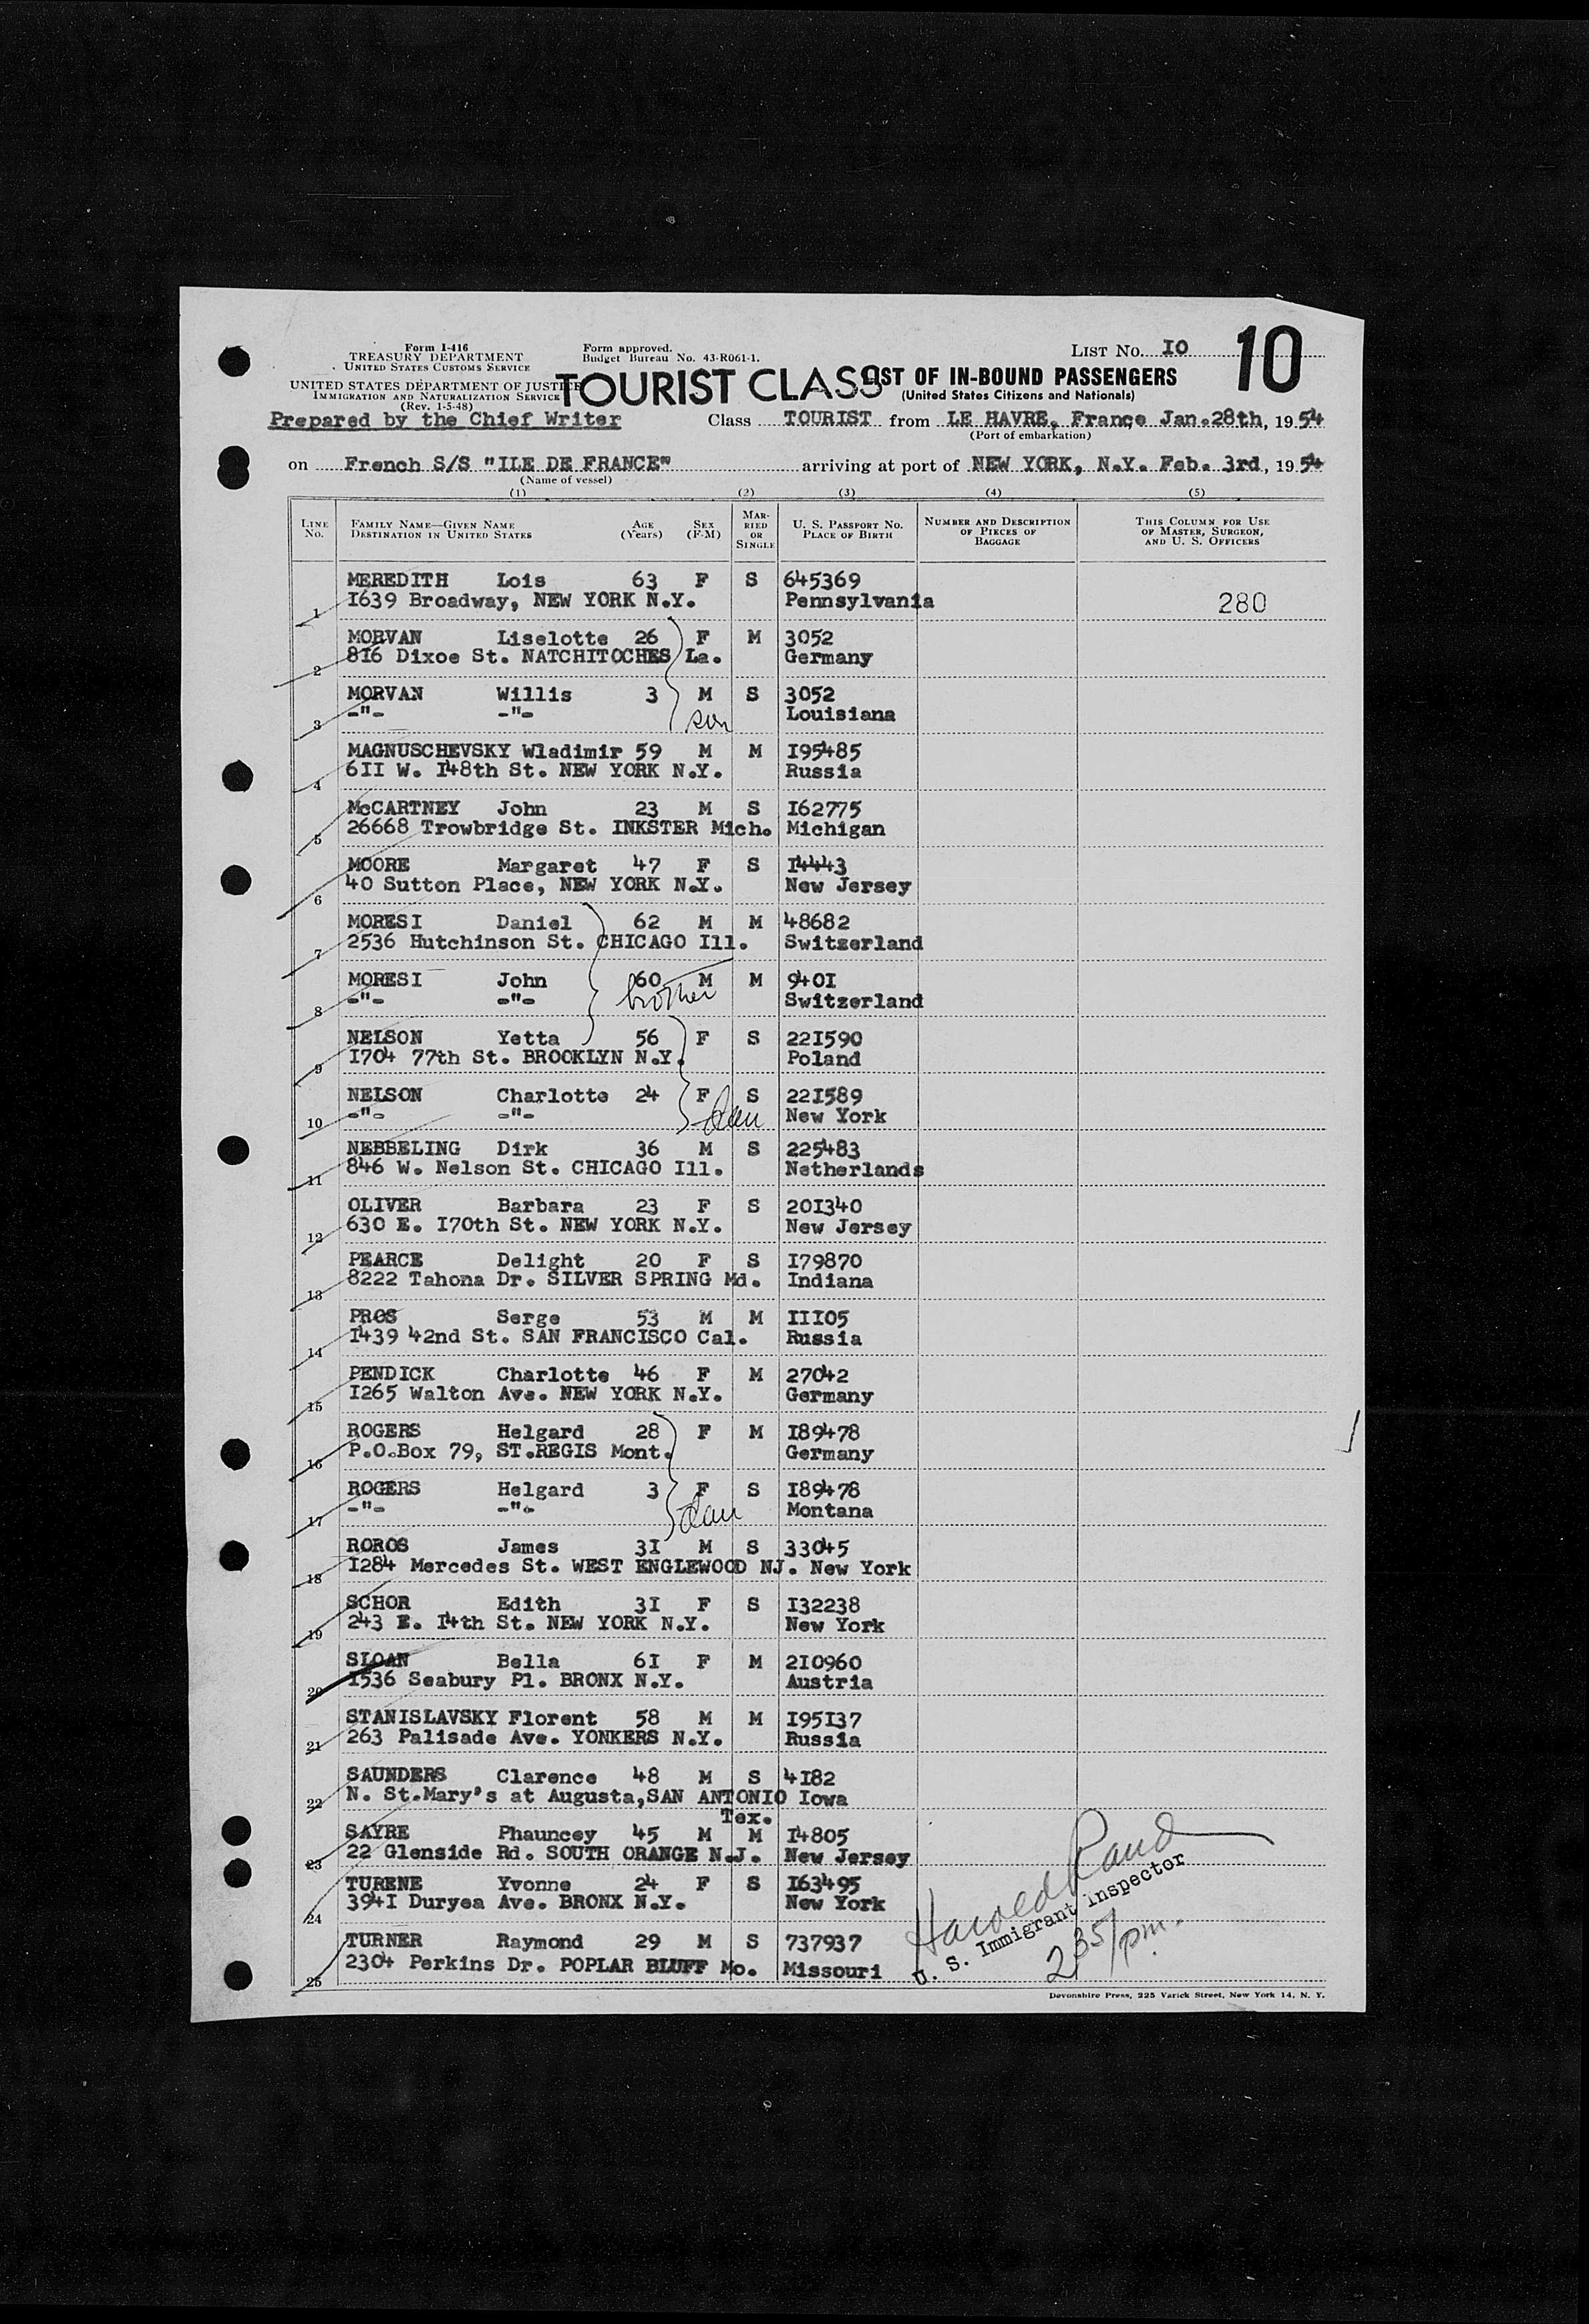 Form I-416
TREASURY DEPARTMENT
UNITED STATES CUSTOMS SERVICE
UNITED STATES DEPARTMENT OF JUSTICE
IMMIGRATION AND NATURALIZATION SERVICE
(Rev. 1-5-48)
Form approved.
Budget Bureau No. 43-R061-1.
LIST NO. I0
10
TOURIST CLASS
LIST OF IN-BOUND PASSENGERS
(United States Citizens and Nationals)
Prepared by the Chief Writer
Class TOURIST from LE HAVRE, France Jan.28th, 1954
(Port of embarkation)
on French S/S "ILE DE FRANCE" arriving at port of NEW YORK, N.Y. Feb. 3rd, 1954
(Name of vessel)
(1) (2) (3) (4) (5)
LINE No. FAMILY NAME—GIVEN NAME DESTINATION IN UNITED STATES AGE (Years) SEX (F-M) MARRIED OR SINGLE U. S. PASSPORT NO. PLACE OF BIRTH NUMBER AND DESCRIPTION OF PIECES OF BAGGAGE THIS COLUMN FOR USE OF MASTER, SURGEON, AND U. S. OFFICERS
MEREDITH Lois 63 F S 645369
1 I639 Broadway, NEW YORK N.Y. Pennsylvania 280
MORVAN Liselotte 26 F M 3052
2 8I6 Dixoe St. NATCHITOCHES La. Germany
MORVAN Willis 3 M S 3052
3 -"- -"- son Louisiana
MAGNUSCHEVSKY Wladimir 59 M M I95485
4 6II W. I48th St. NEW YORK N.Y. Russia
McCARTNEY John 23 M S I62775
5 26668 Trowbridge St. INKSTER Mich. Michigan
MOORE Margaret 47 F S I4443
6 40 Sutton Place, NEW YORK N.Y. New Jersey
MORESI Daniel 62 M M 48682
7 2536 Hutchinson St. CHICAGO Ill. Switzerland
MORESI John 60 M M 940I
8 -"- -"- brother Switzerland
NELSON Yetta 56 F S 22I590
9 I704 77th St. BROOKLYN N.Y. Poland
NELSON Charlotte 24 F S 22I589
10 -"- -"- dau New York
NEBBELING Dirk 36 M S 225483
11 846 W. Nelson St. CHICAGO Ill. Netherlands
OLIVER Barbara 23 F S 20I340
12 630 E. I70th St. NEW YORK N.Y. New Jersey
PEARCE Delight 20 F S I79870
13 8222 Tahona Dr. SILVER SPRING Md. Indiana
PROS Serge 53 M M III05
14 I439 42nd St. SAN FRANCISCO Cal. Russia
PENDICK Charlotte 46 F M 27042
15 I265 Walton Ave. NEW YORK N.Y. Germany
ROGERS Helgard 28 F M I89478
16 P.O.Box 79, ST.REGIS Mont. Germany
ROGERS Helgard 3 F S I89478
17 -"- -"- dau Montana
ROROS James 3I M S 33045
18 I284 Mercedes St. WEST ENGLEWOOD NJ. New York
SCHOR Edith 3I F S I32238
19 243 E. I4th St. NEW YORK N.Y. New York
SLOAN Bella 6I F M 2I0960
20 I536 Seabury Pl. BRONX N.Y. Austria
STANISLAVSKY Florent 58 M M I95I37
21 263 Palisade Ave. YONKERS N.Y. Russia
SAUNDERS Clarence 48 M S 4I82
22 N. St.Mary's at Augusta,SAN ANTONIO Iowa
Tex.
SAYRE Phauncey 45 M M I4805
23 22 Glenside Rd. SOUTH ORANGE N.J. New Jersey
TURENE Yvonne 24 F S I63495
24 394I Duryea Ave. BRONX N.Y. New York
TURNER Raymond 29 M S 737937
25 2304 Perkins Dr. POPLAR BLUFF Mo. Missouri
Harold Rand
U. S. Immigrant Inspector
2 35/pm.
Devonshire Press, 225 Varick Street, New York 14, N. Y.